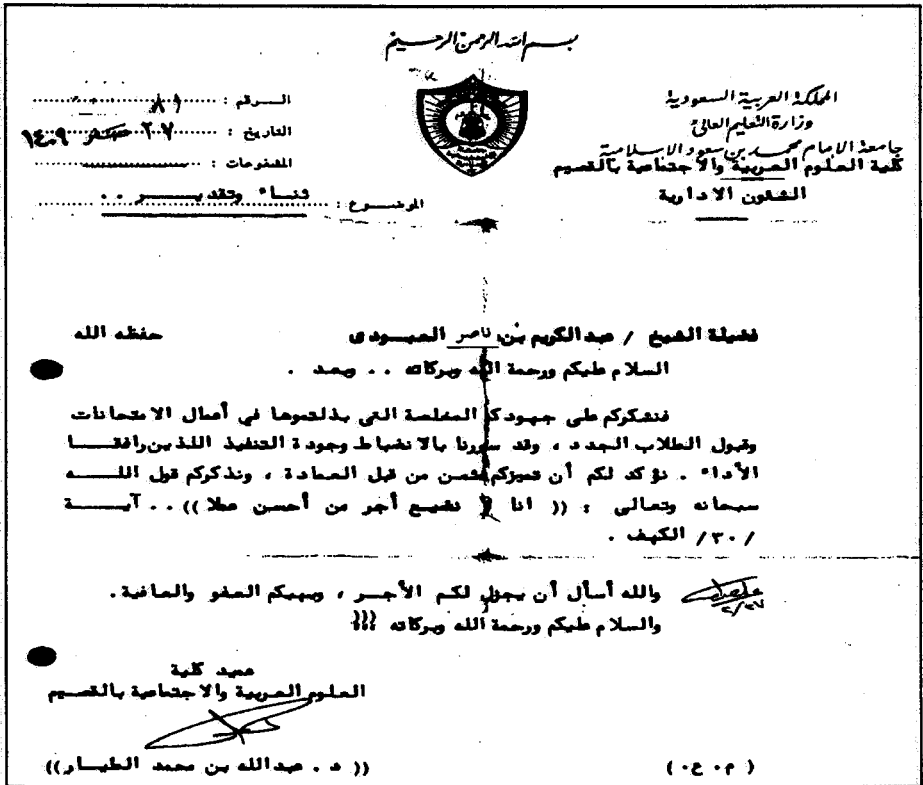 بسم الله الرحمن الرحيم
المملكة العربية السعودية
وزارة التعليم العالي
جامعة الامام محمد بن سعود الاسلامية
كلية العلوم العربية والاجتماعية بالقصيم
الشئون الادارية
الرقم :
التاريخ : صفر ١٤٠٩
المشفوعات :
الموضوع : ثناء وتقدير ..
فضيلة الشيخ / عبدالكريم بن ناصر العبودى حفظه الله
السلام عليكم ورحمة الله وبركاته .. وبعد .
فنشكركم على جهودكم المخلصة التي بذلتموها في أعمال الامتحانات
وقبول الطلاب الجدد ، وقد سررنا بالانضباط وجودة التنفيذ اللذين رافقا
الأداء . نؤكد لكم أن تميزكم مثمن من قبل العمادة ، ونذكركم قول الله
سبحانه وتعالى : (( انا لا نضيع أجر من أحسن عملا )) .. آية
/٣٠/ الكهف .
والله أسأل أن يجزل لكم الأجر ، ويهبكم العفو والعافية .
والسلام عليكم ورحمة الله وبركاته {{{
عميد كلية
العلوم العربية والاجتماعية بالقصيم
(( د . عبدالله بن محمد الطيار ))
( م . ع . )